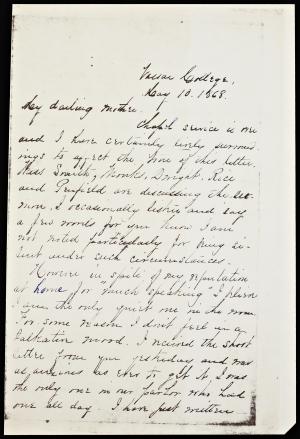 Vassar College,
May 10. 1868.
My darling mother.
Chapel service is over
and I have certainly lively surround-
ings to affect the tone of this letter.
Miss Smith, Monks, Dwight, Rice
and Penfield are discussing the
more. I occasionally listen and say
a few words for you know I am
not noted particularly for being si-
lent under such circumstances.
However in spite of my reputation
at home for "much speaking" I believe
I am the only quiet one in the room.
For some reason I don't feel in a
talkative mood. I received the short
letter from you yesterday and was
as anxious as ever to get it. I was
the only one in our parlor who had
one all day. I have just written